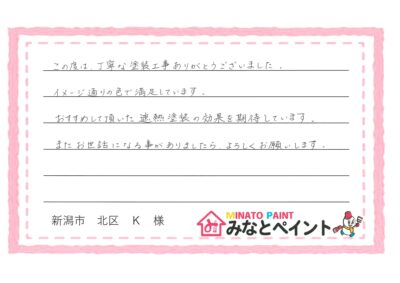 この度は、丁寧な塗装工事ありがとうございました。
イメージ通りの色で満足しています。
おすすめして頂いた遮熱塗装の効果を期待しています。
またお世話になる事がありましたら、よろしくお願いします。
新潟市 北区 K 様
MINATO PAINT
みなとペイント